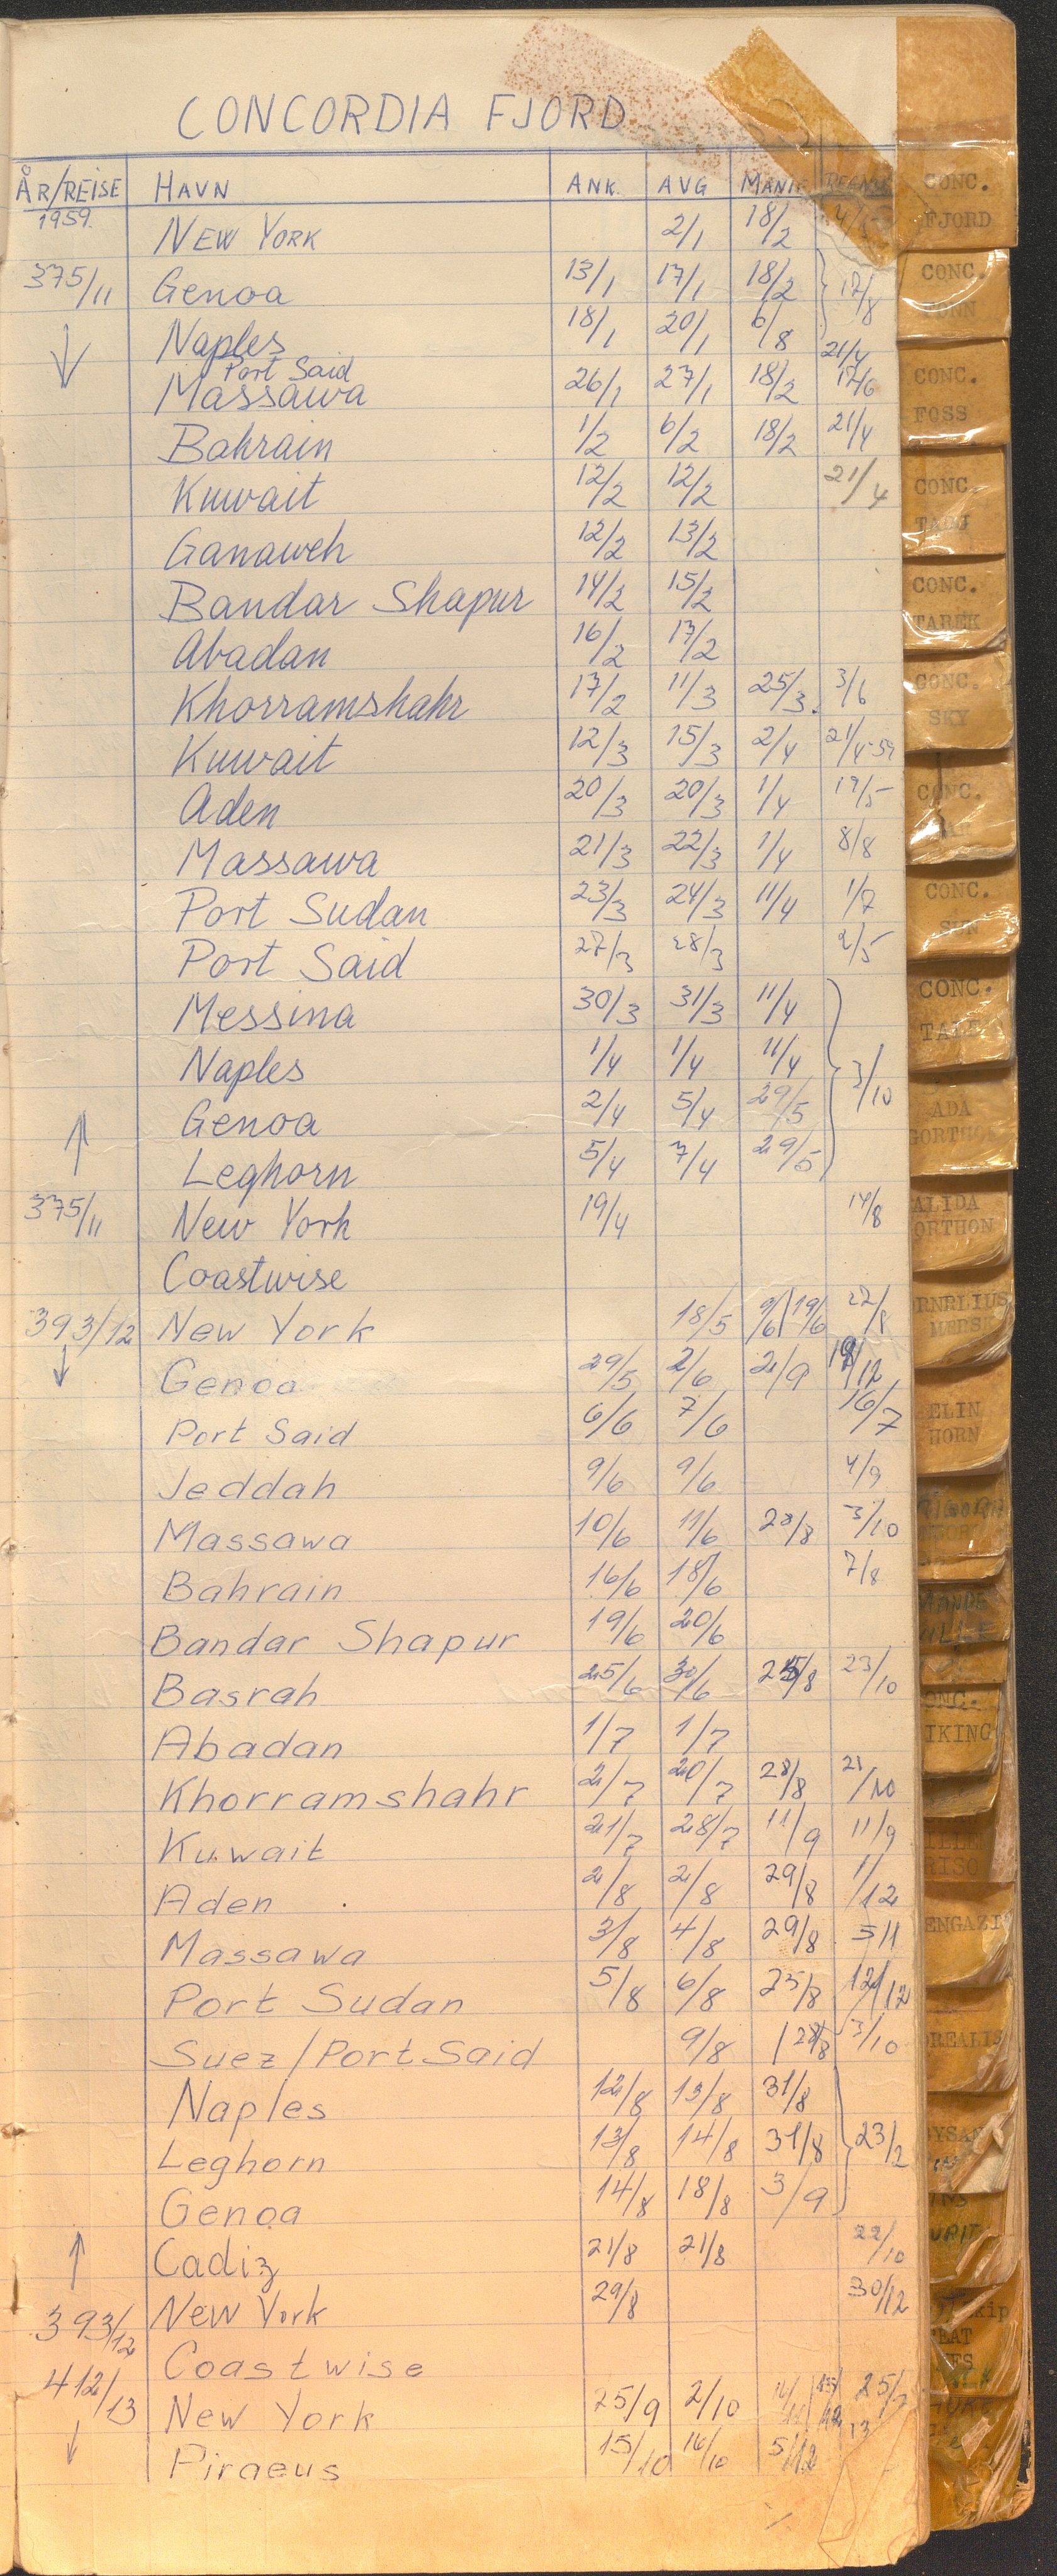 CONCORDIA FJORD
ÅR/REISE HAVN ANK. AVG MANIF. REGNSK
1959. NEW YORK 2/1 18/2
375/11 Genoa 13/1 17/1 18/2 17/8
Naples 18/1 20/1 6/8 21/4
Port Said
Massawa 26/1 27/1 18/2 17/6
Bahrain 1/2 6/2 18/2 21/4
Kuwait 12/2 12/2 21/4
Ganaweh 12/2 13/2
Bandar Shapur 14/2 15/2
Abadan 16/2 17/2
Khorramshahr 17/2 11/3 25/3. 3/6
Kuwait 12/3 15/3 2/4 21/4-59
Aden 20/3 20/3 1/4 19/5
Massawa 21/3 22/3 1/4 8/8
Port Sudan 23/3 24/3 11/4 1/7
Port Said 27/3 28/3 2/5
Messina 30/3 31/3 11/4
Naples 1/4 1/4 11/4 3/10
Genoa 2/4 5/4 29/5
Leghorn 5/4 7/4 29/5
375/11 New York 19/4 14/8
Coastwise
393/12 New York 18/5 9/6 19/6 22/8
Genoa 29/5 2/6 2/9
Port Said 6/6 7/6 16/7
Jeddah 9/6 9/6 4/9
Massawa 10/6 11/6 28/8 3/10
Bahrain 16/6 18/6 7/8
Bandar Shapur 19/6 20/6
Basrah 25/6 30/6 25/8 23/10
Abadan 1/7 1/7
Khorramshahr 2/7 20/7 28/8 21/10
Kuwait 21/7 28/7 11/9 11/9
Aden 2/8 2/8 29/8 1/12
Massawa 3/8 4/8 29/8 5/11
Port Sudan 5/8 6/8 25/8 12/12
Suez/Port Said 9/8 28/8 3/10
Naples 12/8 13/8 31/8
Leghorn 13/8 14/8 31/8 23/2
Genoa 14/8 18/8 3/9
Cadiz 21/8 21/8 22/10
393/12 New York 29/8 30/12
Coastwise
412/13 New York 25/9 2/10
Piraeus 15/10 16/10 5/12
CONC.
FJORD
CONC.
CONC.
FOSS
CONC.
TADJ
CONC.
TAREK
CONC.
SKY
CONC.
CONC.
SUN
CONC.
ADA
GORTHON
ALIDA
ORTHON
RNELIUS
MERSK
ELIN
HORN
IKING
ENGAZI
OREALIS